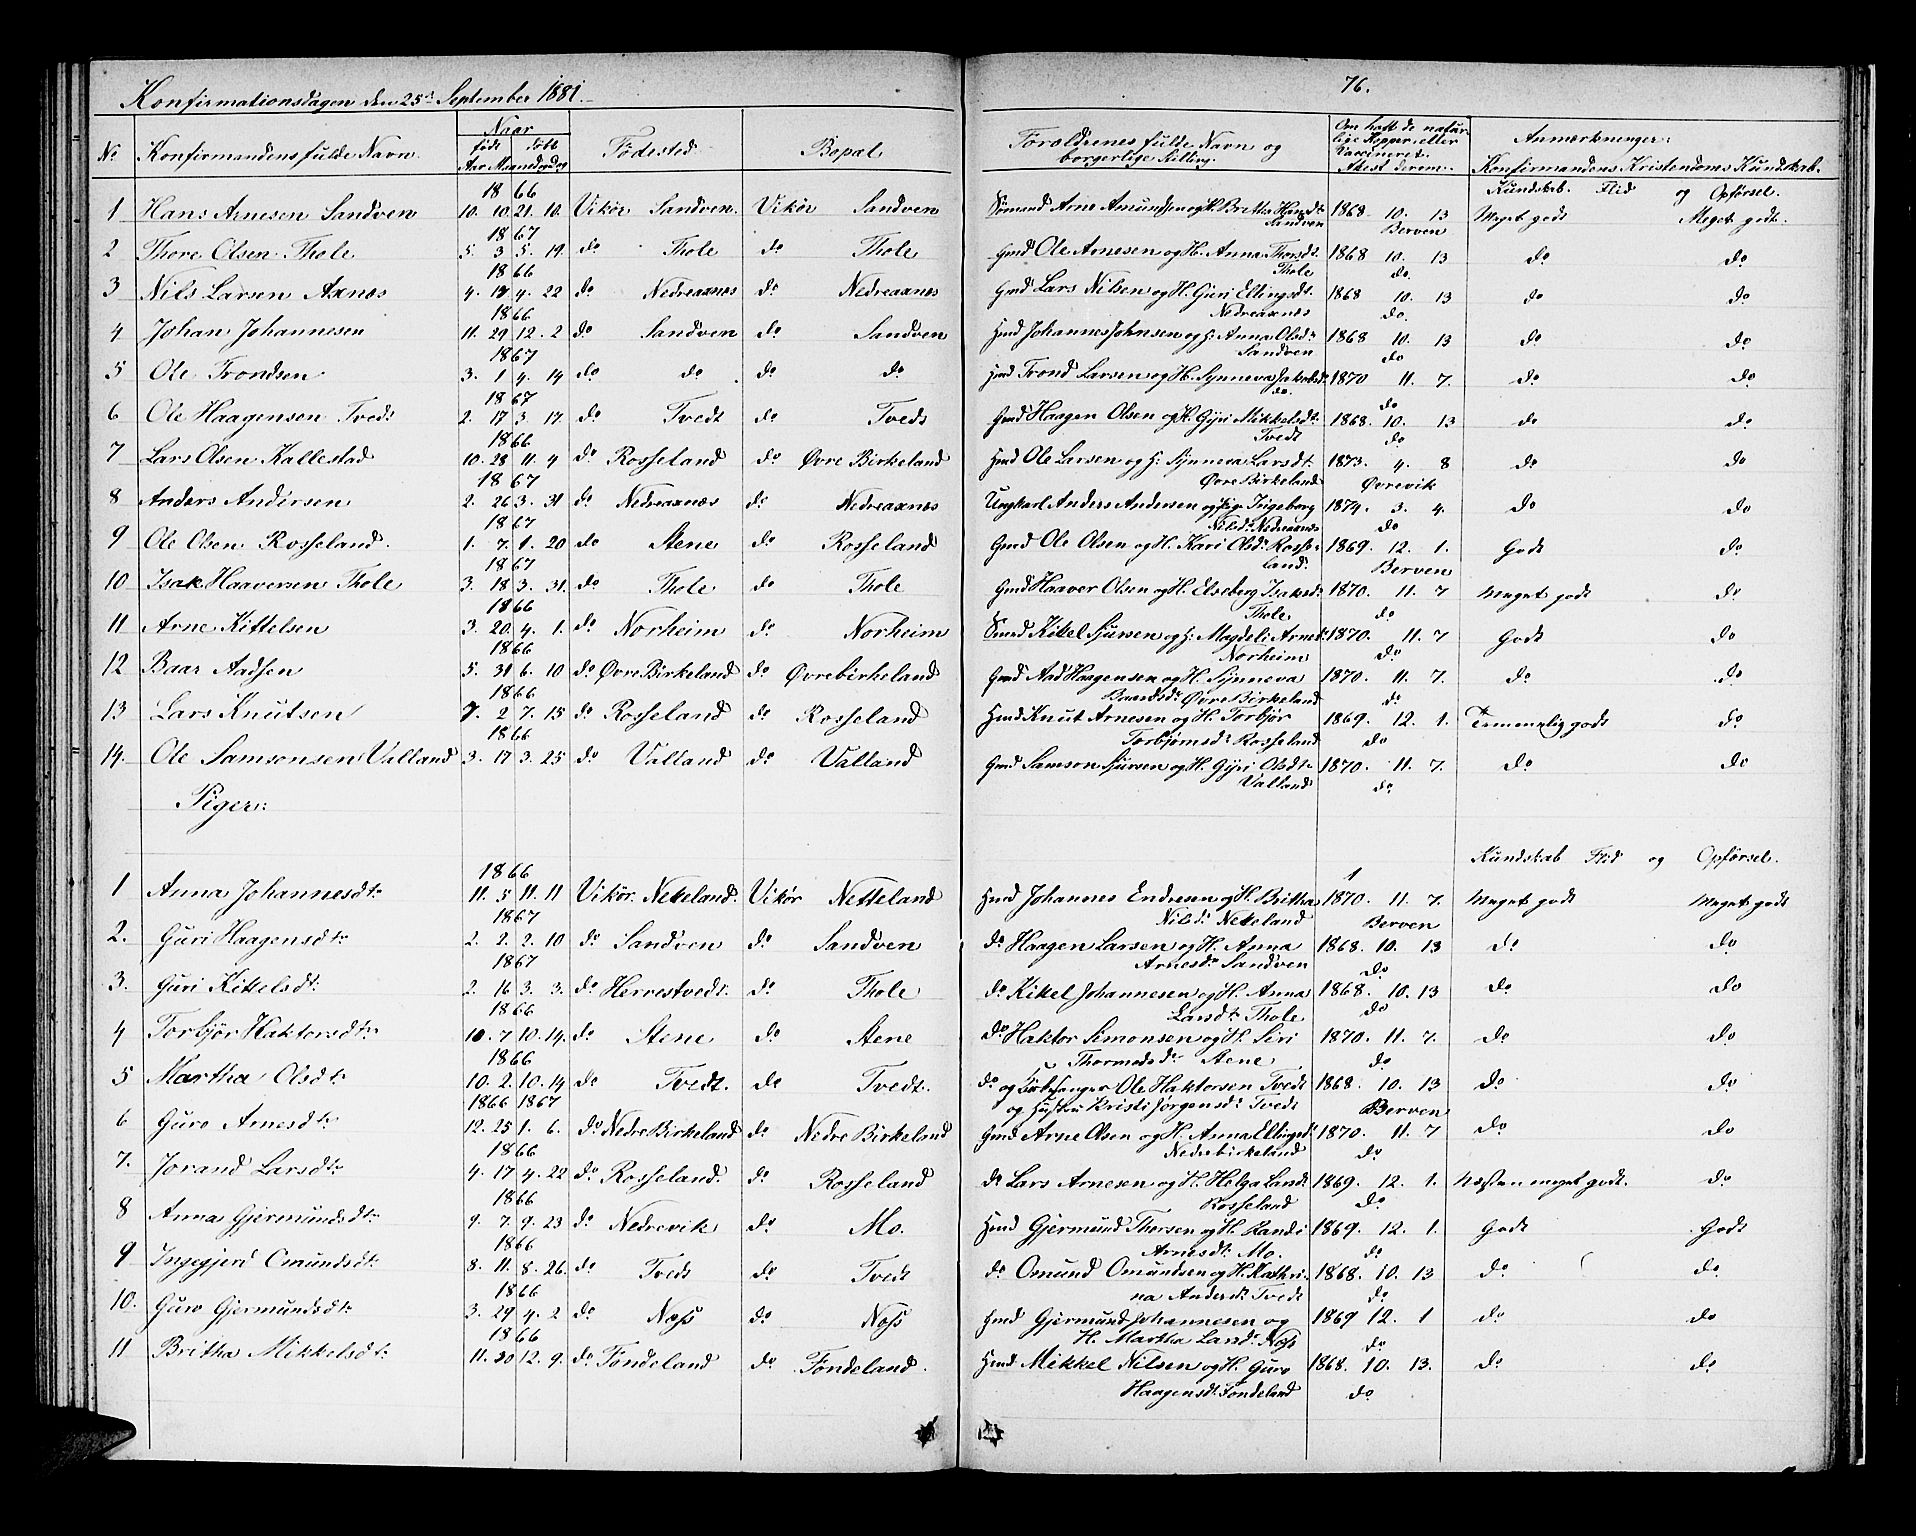 Konfirmationsdagen den 25de September 1881.
76.
No Konfirmandens fulde Navn. Naar født døbt Aar Maaned og dag Fødested. Bopæl. Forældrenes fulde Navn og borgerlige Stilling. Om havt de naturlige Kopper, eller Vaccineret. Attest derom. Anmærkninger: Konfirmandens Kristendoms Kundskab.
Kundskab. Flid og Opførsel.
1866
1 Hans Arnesen Sandven 10. 10. 21. 10. Vikør Sandven. Vikør Sandven Sømand Arne Amundsen og H. Britta Hansdt. 1868 10. 13 Meget godt Meget godt.
Sandven Berven
1867
2 Thore Olsen Thole 5. 3 5. 19. do Thole do Thole Gmd Ole Arnesen og H. Anna Thorsdt. 1868 10. 13 do do
Thole do
1866
3 Nils Larsen Axnes 4. 17 4. 22 do Nedreaxnes do Nedreaxnes Gmd Lars Nilsen og H. Guri Ellingsdt. 1868 10. 13 do do
Nedreaxnes do.
1866
4 Johan Johannesen 11. 29 12. 2 do Sandven do Sandven Hmd Johannes Johnsen og H. Anna Olsdr 1868 10. 13 do do
Sandven do
1867
5 Ole Trondsen 3. 1 4. 14 do do do do Hmd Trond Larsen og H. Synneva Jakobsd. 1870 11. 7. do do
do. do
1867
6 Ole Haagenson Tvedt 2. 17 3. 17. do Tvedt do Tvedt Gmd Haagen Olsen og H. Gyri Mikkelsdt. 1868. 10. 13 do do
Tvedt do
1866
7 Lars Olsen Kallestad 10. 28 11. 4 do Rosseland do Øvre Birkeland Hmd Ole Larsen og H. Synneva Larsdt. 1873. 4. 8 do do
Øvre Birkeland Øvrevik
1867
8 Anders Andersen 2. 26 3. 31 do Nedreaxnes do Nedreaxnes Ungkarl Anders Andersen og Pige Ingeborg 1874. 3. 4. do do
Nilsdr Nedreaxnes do
1867
9 Ole Olsen Rosseland. 1. 7. 1. 20 do Stene do Rosseland Gmd Ole Olsen og H. Kari Olsdr Rosse- 1869. 12. 1. Godt do
land. Berven
1867
10 Isak Haaversen Thole 3. 18 3. 31. do Thole do Thole Gmd Haaver Olsen og H. Elseberg Isaksdr 1870. 11. 7 Meget godt do
Thole do
1866
11 Arne Kittelsen 3. 20. 4. 1. do Norheim do Norheim Smd Kikel Sjursen og H. Magdeli Arnedt 1870. 11. 7 Godt do
Norheim do
1866
12 Baar Aadsen 5. 31 6. 10 do Øvre Birkeland do Øvrebirkeland Gmd Aad Haagensen og H. Synneva 1870. 11. 7. do do
Baardsdr Øvre Birkeland do
1866
13 Lars Knutsen 7. 2 7. 15 do Rosseland do Rosseland Hmd Knut Arnesen og H. Torbjør 1869. 12. 1. Temmelig godt do
Torbjørnsdr Rosseland do
1866
14. Ole Samsonsen Valland 3. 17 3. 25 do Valland do Valland Gmd Samson Sjursen og H. Gyri Olsdt. 1870. 11. 7. do do
Valland do
Piger:
Kundskab Flid og Opførsel.
1866
1 Anna Johannesdt. 11. 5 11. 11 Vikør. Neteland. Vikør Netteland Hmd Johannes Endresen og H. Britha 1870. 11. 7. Meget godt Meget godt
Nilsdr Neteland Berven
1867
2. Guri Haagensdt. 2. 2. 2. 10 do Sandven do Sandven do Haagen Larsen og H. Anna 1868. 10. 13 do do
Arnesdr Sandven do
1867
3. Guri Kikelsdt. 2. 16 3. 3. do Herrestvedt. do Thole do Kikel Johannesen og H. Anna 1868. 10. 13 do do
Larsdt. Thole do
1866
4 Torbjør Haktorsdt. 10. 7 10. 14. do Stene do Stene do Haktor Simonsen og H. Siri 1870. 11. 7. do do
Thormodsdr Stene do
1866
5 Martha Olsdt. 10. 2. 10. 14 do Tvedt. do Tvedt. do og Kirkesanger Ole Haktorsen Tvedt 1868. 10. 13 do do
og Hustru Kristi Jørgensdr Tvedt Berven
1866 1867
6 Guro Arnesdt. 12. 25 1. 6. do Nedre Birkeland do Nedre Birkeland Gmd Arne Olsen og H. Anna Ellingsdt. 1870. 11. 7 do do
Nedrebirkeland do
1866
7. Jorand Larsdt. 4. 17 4. 22 do Rosseland. do Rosseland do Lars Arnesen og H. Helga Larsdt 1869. 12. 1. Næsten meget godt. do
Rosseland do
1866
8 Anna Gjermundsdt. 9. 7. 9. 23 do Nedrevik do Mo. Hmd Gjermund Thorsen og H. Randi 1869. 12. 1. Godt Godt
Arnesdt. Mo. do
1866
9 Ingegjerd Omundsdt. 8. 11. 8. 26. do Tvedt do Tvedt do Omund Omundsen og H. Kathri- 1868. 10. 13 do do
na Andersdr Tvedt do
1866
10. Guro Gjermundsdt. 3. 29 4. 2 do Noss do Noss Hmd Gjermund Johannesen og 1869 12. 1 do do
H. Martha Larsdr Noss do
1866
11 Britha Mikkelsdt. 11. 30 12. 9. do Tøndeland do Tøndeland. Hmd Mikkel Nilsen og H. Guro 1868. 10. 13. do do
Haagensdt. Tøndeland do